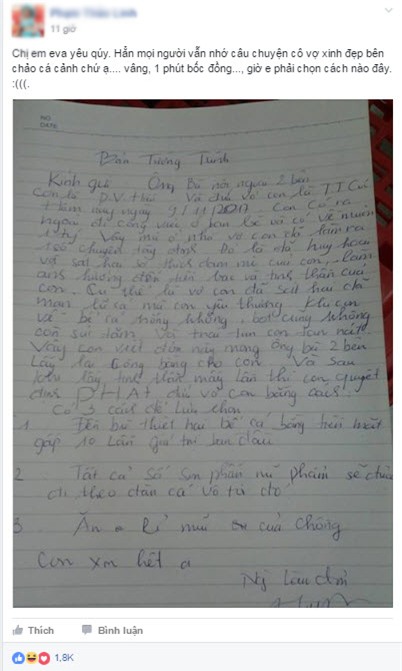 11 giờ
Chị em eva yêu qúy. Hẳn mọi người vẫn nhớ câu chuyện cô vợ xinh đẹp bên
chảo cá cảnh chứ ạ.... vâng, 1 phút bốc đồng..., giờ e phải chọn cách nào đây.
:(((.
NO
DATE
Bản Tường Trình
Kính gửi Ông Bà nội ngoại 2 bên
Con là P.V. Và chú vợ con là T.T.
Hôm nay ngày 9/11/2017 Con có ra
ngoài đi công việc ở bên lề và có về muộn
1 tý. Vậy mà ở nhà vợ con đã làm ra
chuyện tày đình. Đó là đã hủy hoại
và sát hại sở thích đam mê của con, làm
ảnh hưởng đến tiền bạc và tinh thần của
con. Cụ thể là vợ con đã sát hại dã
man lũ cá mà con yêu thương. Khi con
về bể cá trống không, bọt cũng không
còn sủi tăm. Và trái tim con tan nát.
Vậy con viết đơn này mong ông bà 2 bên
Lấy lại công bằng cho con. Và sau
khi lấy tinh thần mấy lần thì con quyết
định PHẠT chú vợ con bằng cách:
Có 3 cách để lựa chọn
1 Đền bù thiệt hại bể cá bằng tiền mặt
gấp 10 lần giá trị ban đầu
2 Tất cả số sản phẩm mỹ phẩm sẽ
đi theo đàn cá vô tội đó
3 Ăn Rỉ mũi của chồng
Con xin hết ạ
Ng làm đơn
Thích
Bình luận
1,8K